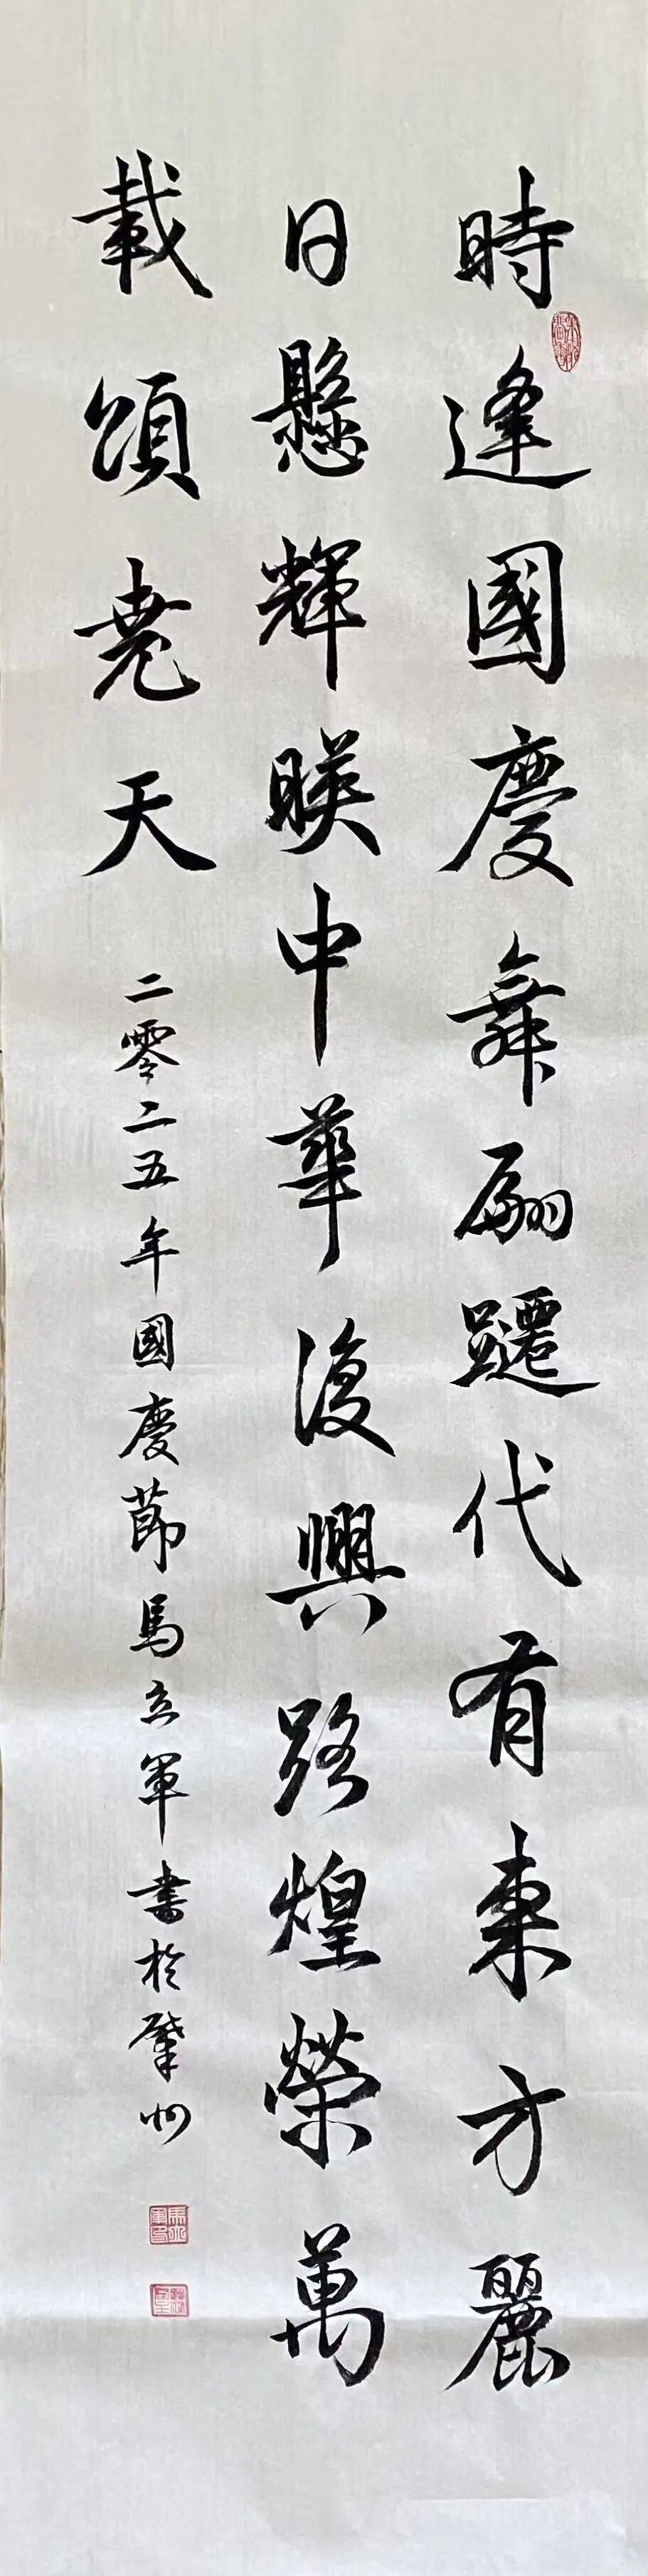 時逢國慶舞翩躚代有東方麗
日懸輝暎中華復興路煌榮萬
載頌堯天
二零二五年國慶節馬立軍書於肇州